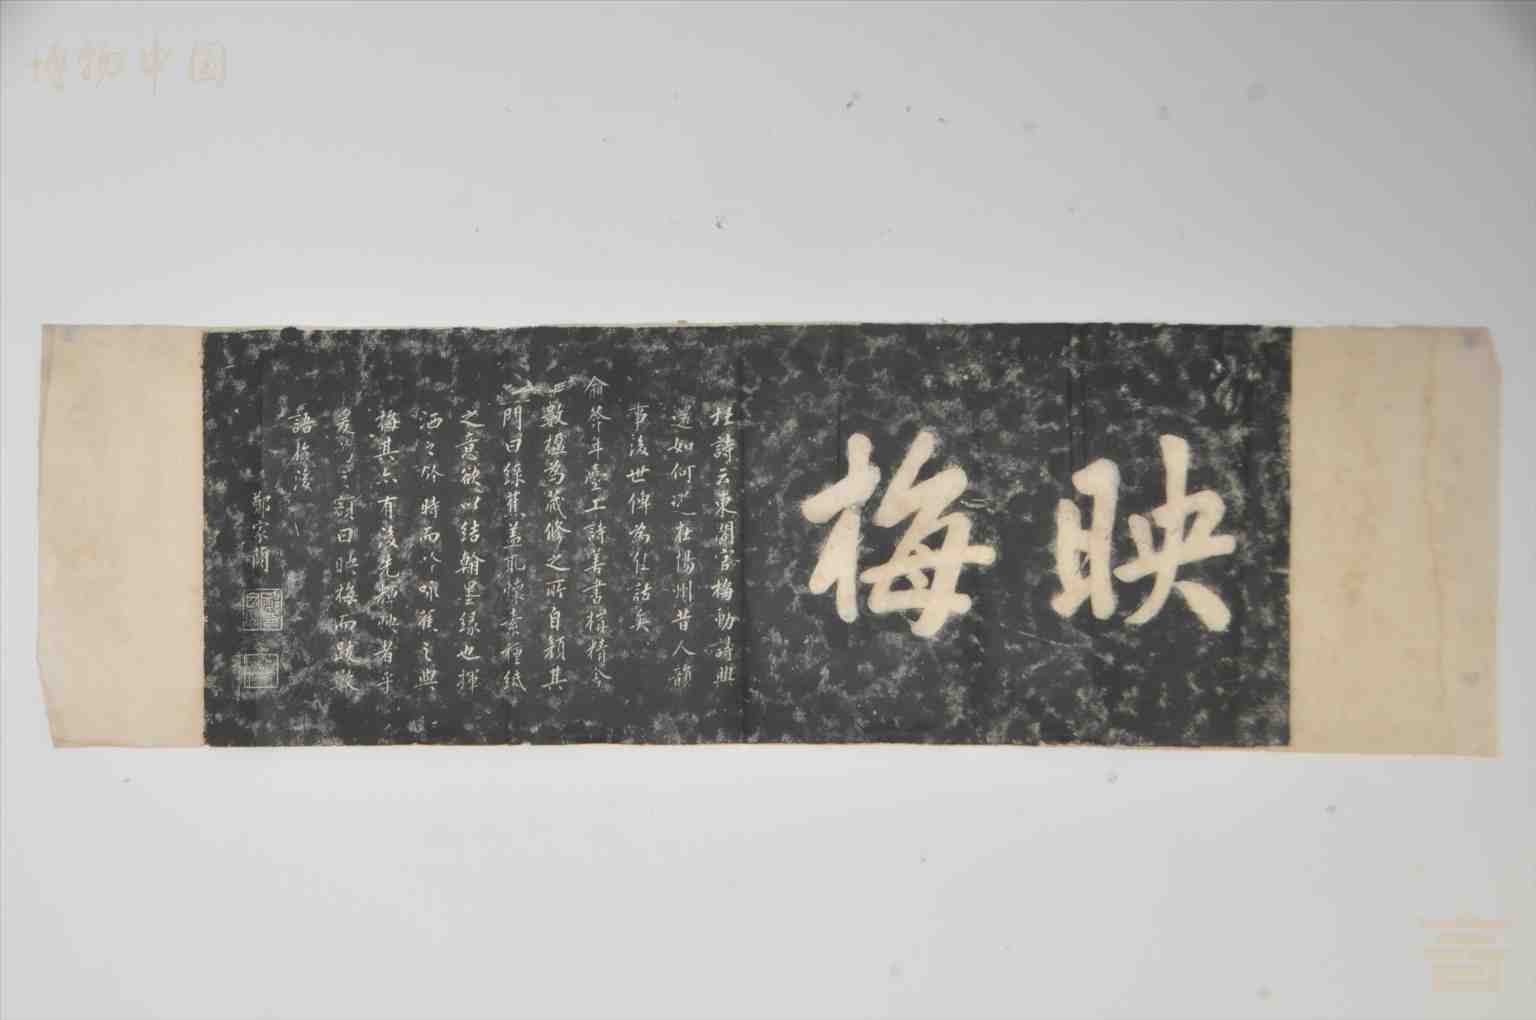 博物中国
映梅
杜詩云東閣官梅動詩興
還如何遜在揚州昔人韻
事後世俾為佳話矣
俞 年 工詩善書
數植為藏修之所自顏其
門曰綠蕉蓋取懷素種紙
之意欲以結翰墨緣也揮
洒之餘時而吟咏雅之興
梅其亦有後先輝映者乎
爰 之額曰映梅而跋數
語於後
鄭家蘭